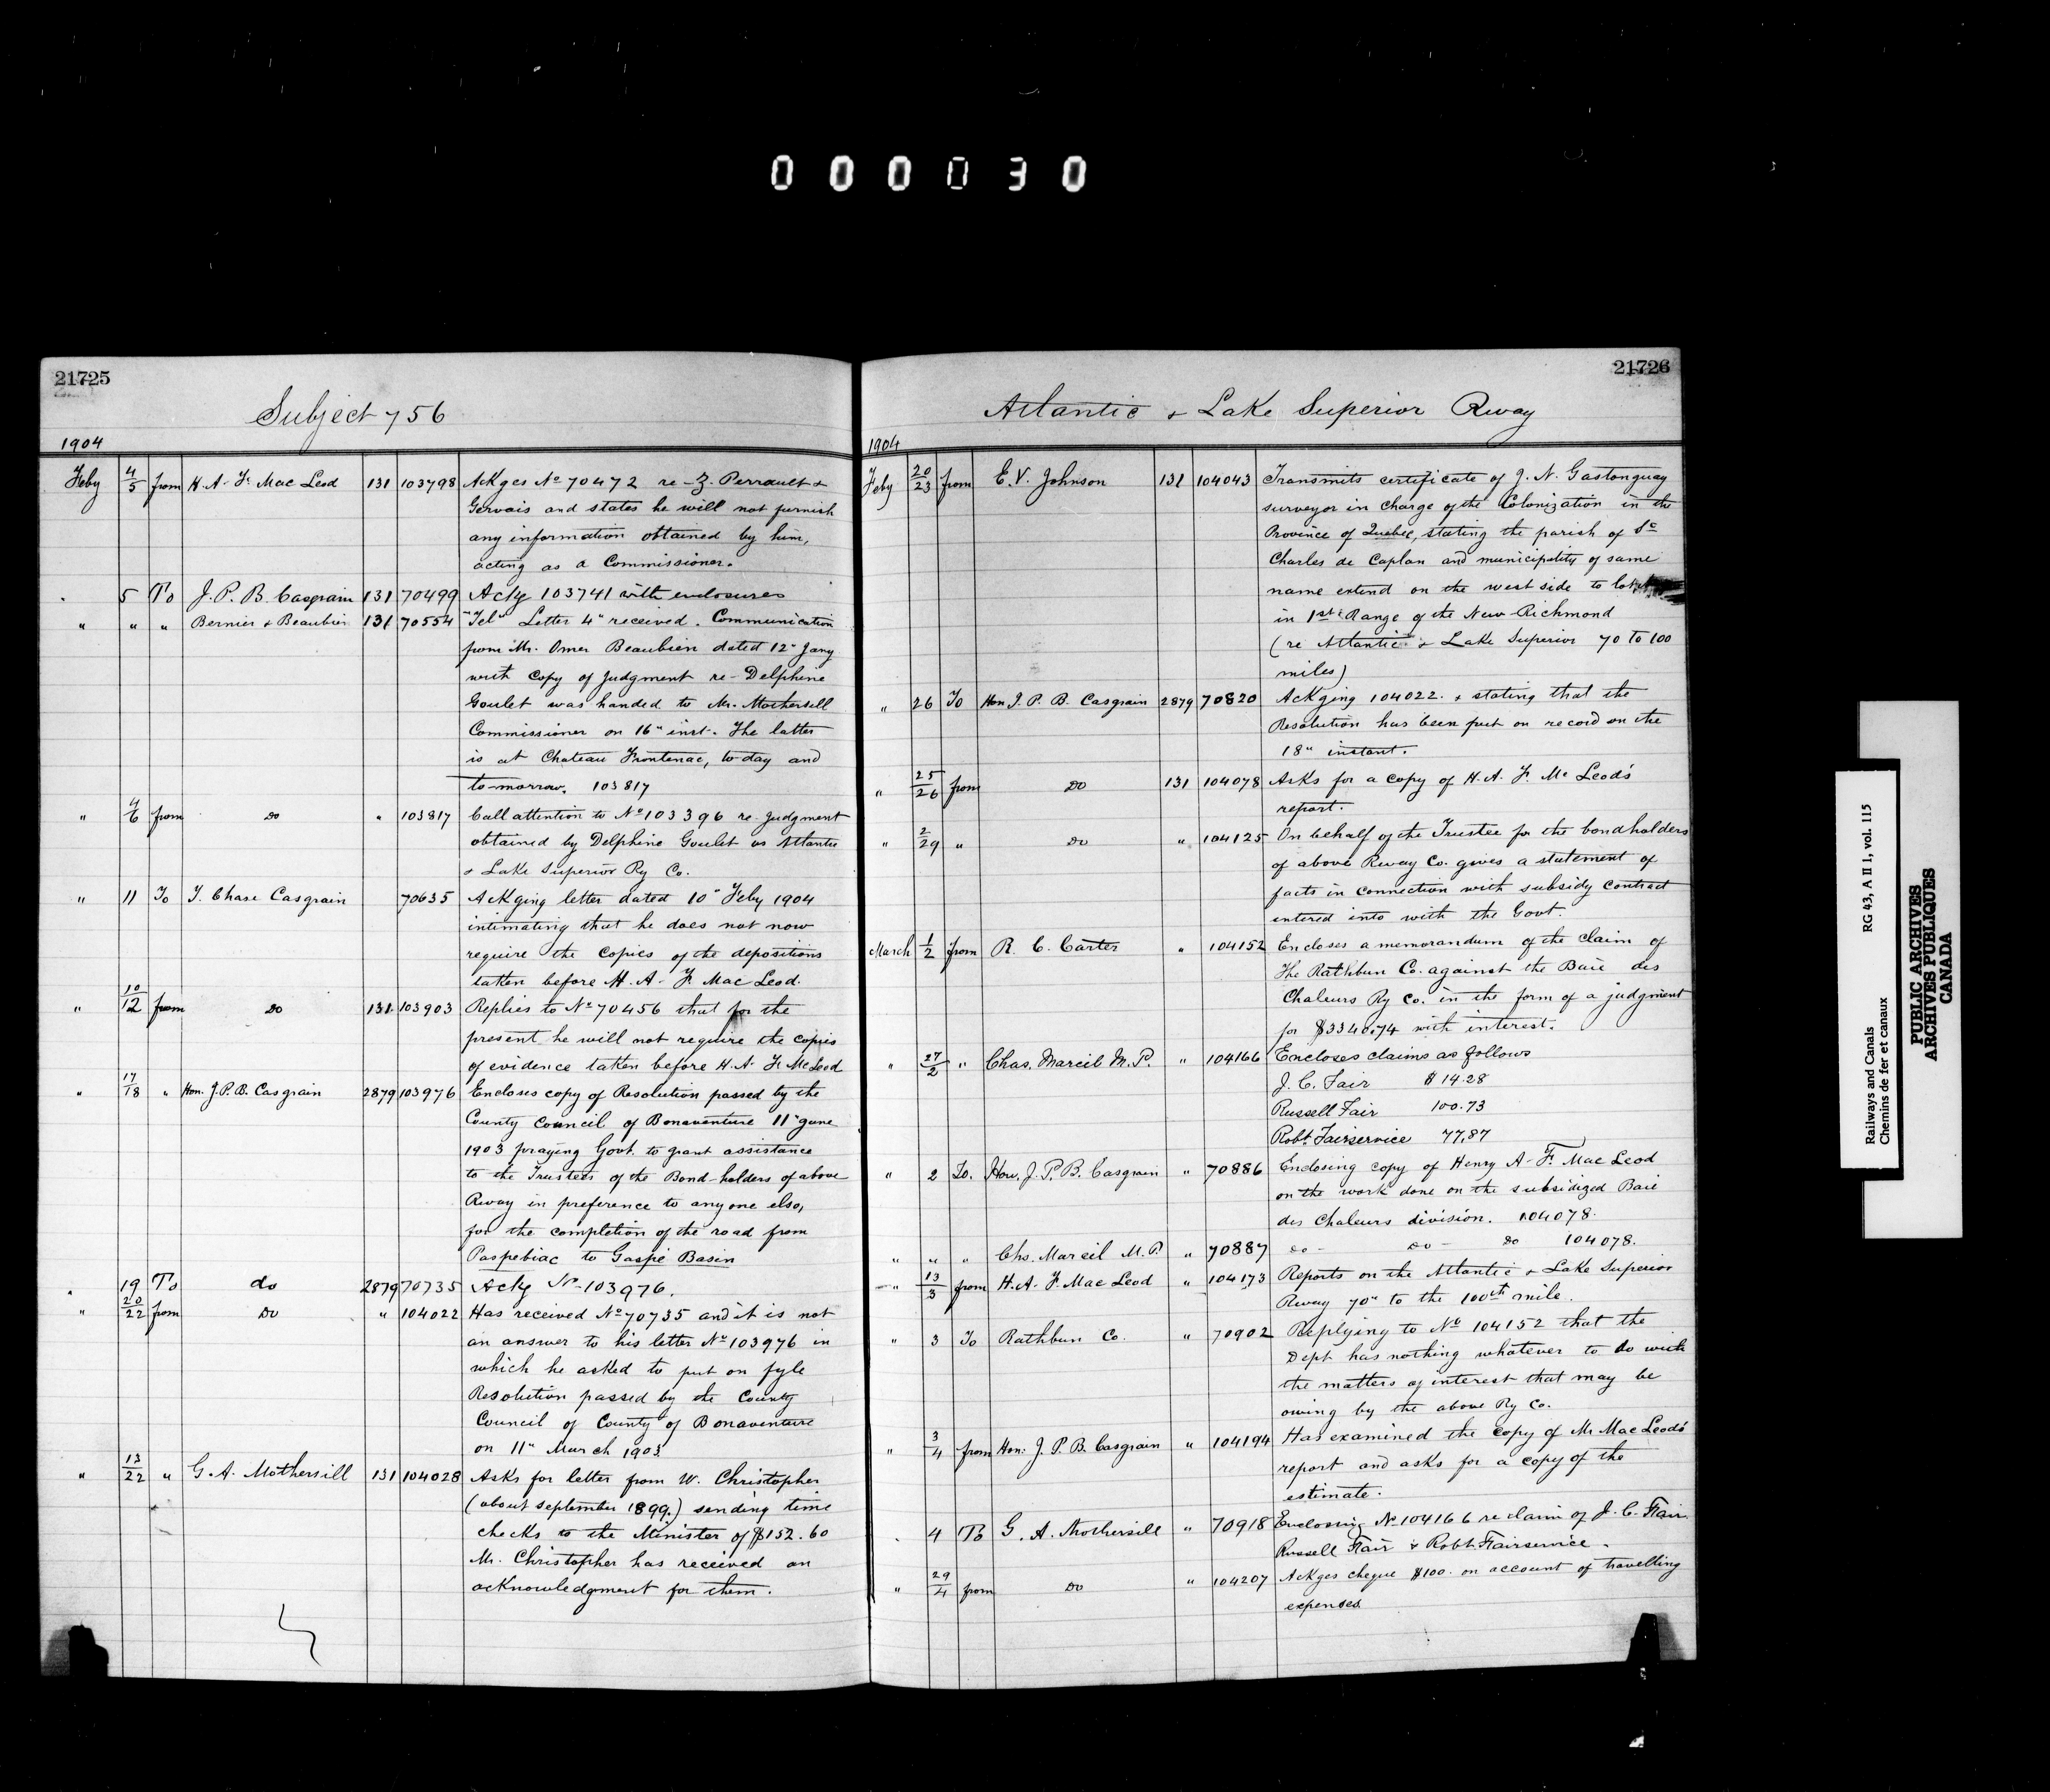 000030
21725
Subject 756
1904
Feby 4/5 from H. A. F. Mac Leod 131 103798 Ackges No 70472 re Z. Perrault &
Gervais and states he will not furnish
any information obtained by him,
acting as a Commissioner.
5 To J. P. B. Casgrain 131 70499 Ackg 103741 with enclosures
" " " Bernier & Beaubien 131 70554 "Tel" Letter 4" received. Communication
from Mr. Omer Beaubien dated 12" Jany
with copy of judgment re - Delphine
Goulet was handed to Mr. Mothersill
Commissioner on 16" inst. The latter
is at Chateau Frontenac, to-day and
to-morrow. 103817
" 4/6 from Do " 103817 Call attention to No 103396 re judgment
obtained by Delphine Goulet vs Atlantic
& Lake Superior Ry Co.
" 11 To T. Chase Casgrain 70635 Ackging letter dated 10" Feby 1904
intimating that he does not now
require the copies of the depositions
taken before H. A. F. Mac Leod.
" 10/12 from Do 131 103903 Replies to No 70456 that for the
present he will not require the copies
of evidence taken before H. A. F. McLeod
" 17/18 " Hon. J. P. B. Casgrain 2879 103976 Encloses copy of Resolution passed by the
County Council of Bonaventure 11" June
1903 praying Govt. to grant assistance
to the Trustees of the Bond-holders of above
Rway in preference to anyone else,
for the completion of the road from
Paspebiac to Gaspé Basin
19 To do 2879 70735 Ackg No 103976.
" 20/22 from Do " 104022 Has received No 70735 and it is not
an answer to his letter No 103976 in
which he asked to put on fyle
Resolution passed by the County
Council of County of Bonaventure
on 11" March 1903
" 13/22 " G. A. Mothersill 131 104028 Asks for letter from W. Christopher
(about September 1899.) sending time
checks to the Minister of $152.60
Mr. Christopher has received an
acknowledgment for them.
21726
Atlantic & Lake Superior Rway
1904
Feby 20/23 from E. V. Johnson 131 104043 Transmits certificate of J. N. Gastonguay
surveyor in charge of the Colonization in the
Province of Quebec, stating the parish of St
Charles de Caplan and municipality of same
name extend on the west side to
in 1st Range of the New-Richmond
(re Atlantic & Lake Superior 70 to 100
miles)
" 26 To Hon J. P. B. Casgrain 2879 70820 Ackging 104022. & stating that the
Resolution has been put on record on the
18" instant.
" 25/26 from Do 131 104078 Asks for a copy of H. A. F. Mc Leod's
report.
" 2/29 " Do " 104125 On behalf of the Trustee for the bondholders
of above Rway Co. gives a statement of
facts in connection with subsidy contract
entered into with the Govt.
March 1/2 from R. C. Carter " 104152 Encloses a memorandum of the claim of
The Rathbun Co. against the Baie des
Chaleurs Ry Co. in the form of a judgment
for $3340.74 with interest.
" 27/2 " Chas. Marcil M. P. " 104166 Encloses claims as follows
J. C. Fair $14.28
Russell Fair 100.73
Robt Fairservice 77.87
" 2 To. Hon. J. P. B. Casgrain " 70886 Enclosing copy of Henry A. F. Mac Leod
on the work done on the subsidized Baie
des Chaleurs division. 104078.
" " " Chs. Marcil M. P. " 70887 do - do - do 104078.
" 13/3 from H. A. F. Mac Leod " 104173 Reports on the Atlantic & Lake Superior
Rway 70" to the 100th mile.
" 3 To Rathbun Co. " 70902 Replying to No 104152 that the
Dept has nothing whatever to do with
the matters of interest that may be
owing by the above Ry Co.
" 3/4 from Hon: J. P. B. Casgrain " 104194 Has examined the copy of Mr Mac Leod's
report and asks for a copy of the
estimate.
4 To G. A. Mothersill " 70918 Enclosing No 104166 re claim of J. C. Fair
Russell Fair & Robt Fairservice.
" 29/4 from Do " 104207 Ackges cheque $100. on account of travelling
expenses.
Railways and Canals RG 43, A II 1, vol. 115
Chemins de fer et canaux
PUBLIC ARCHIVES
ARCHIVES PUBLIQUES
CANADA